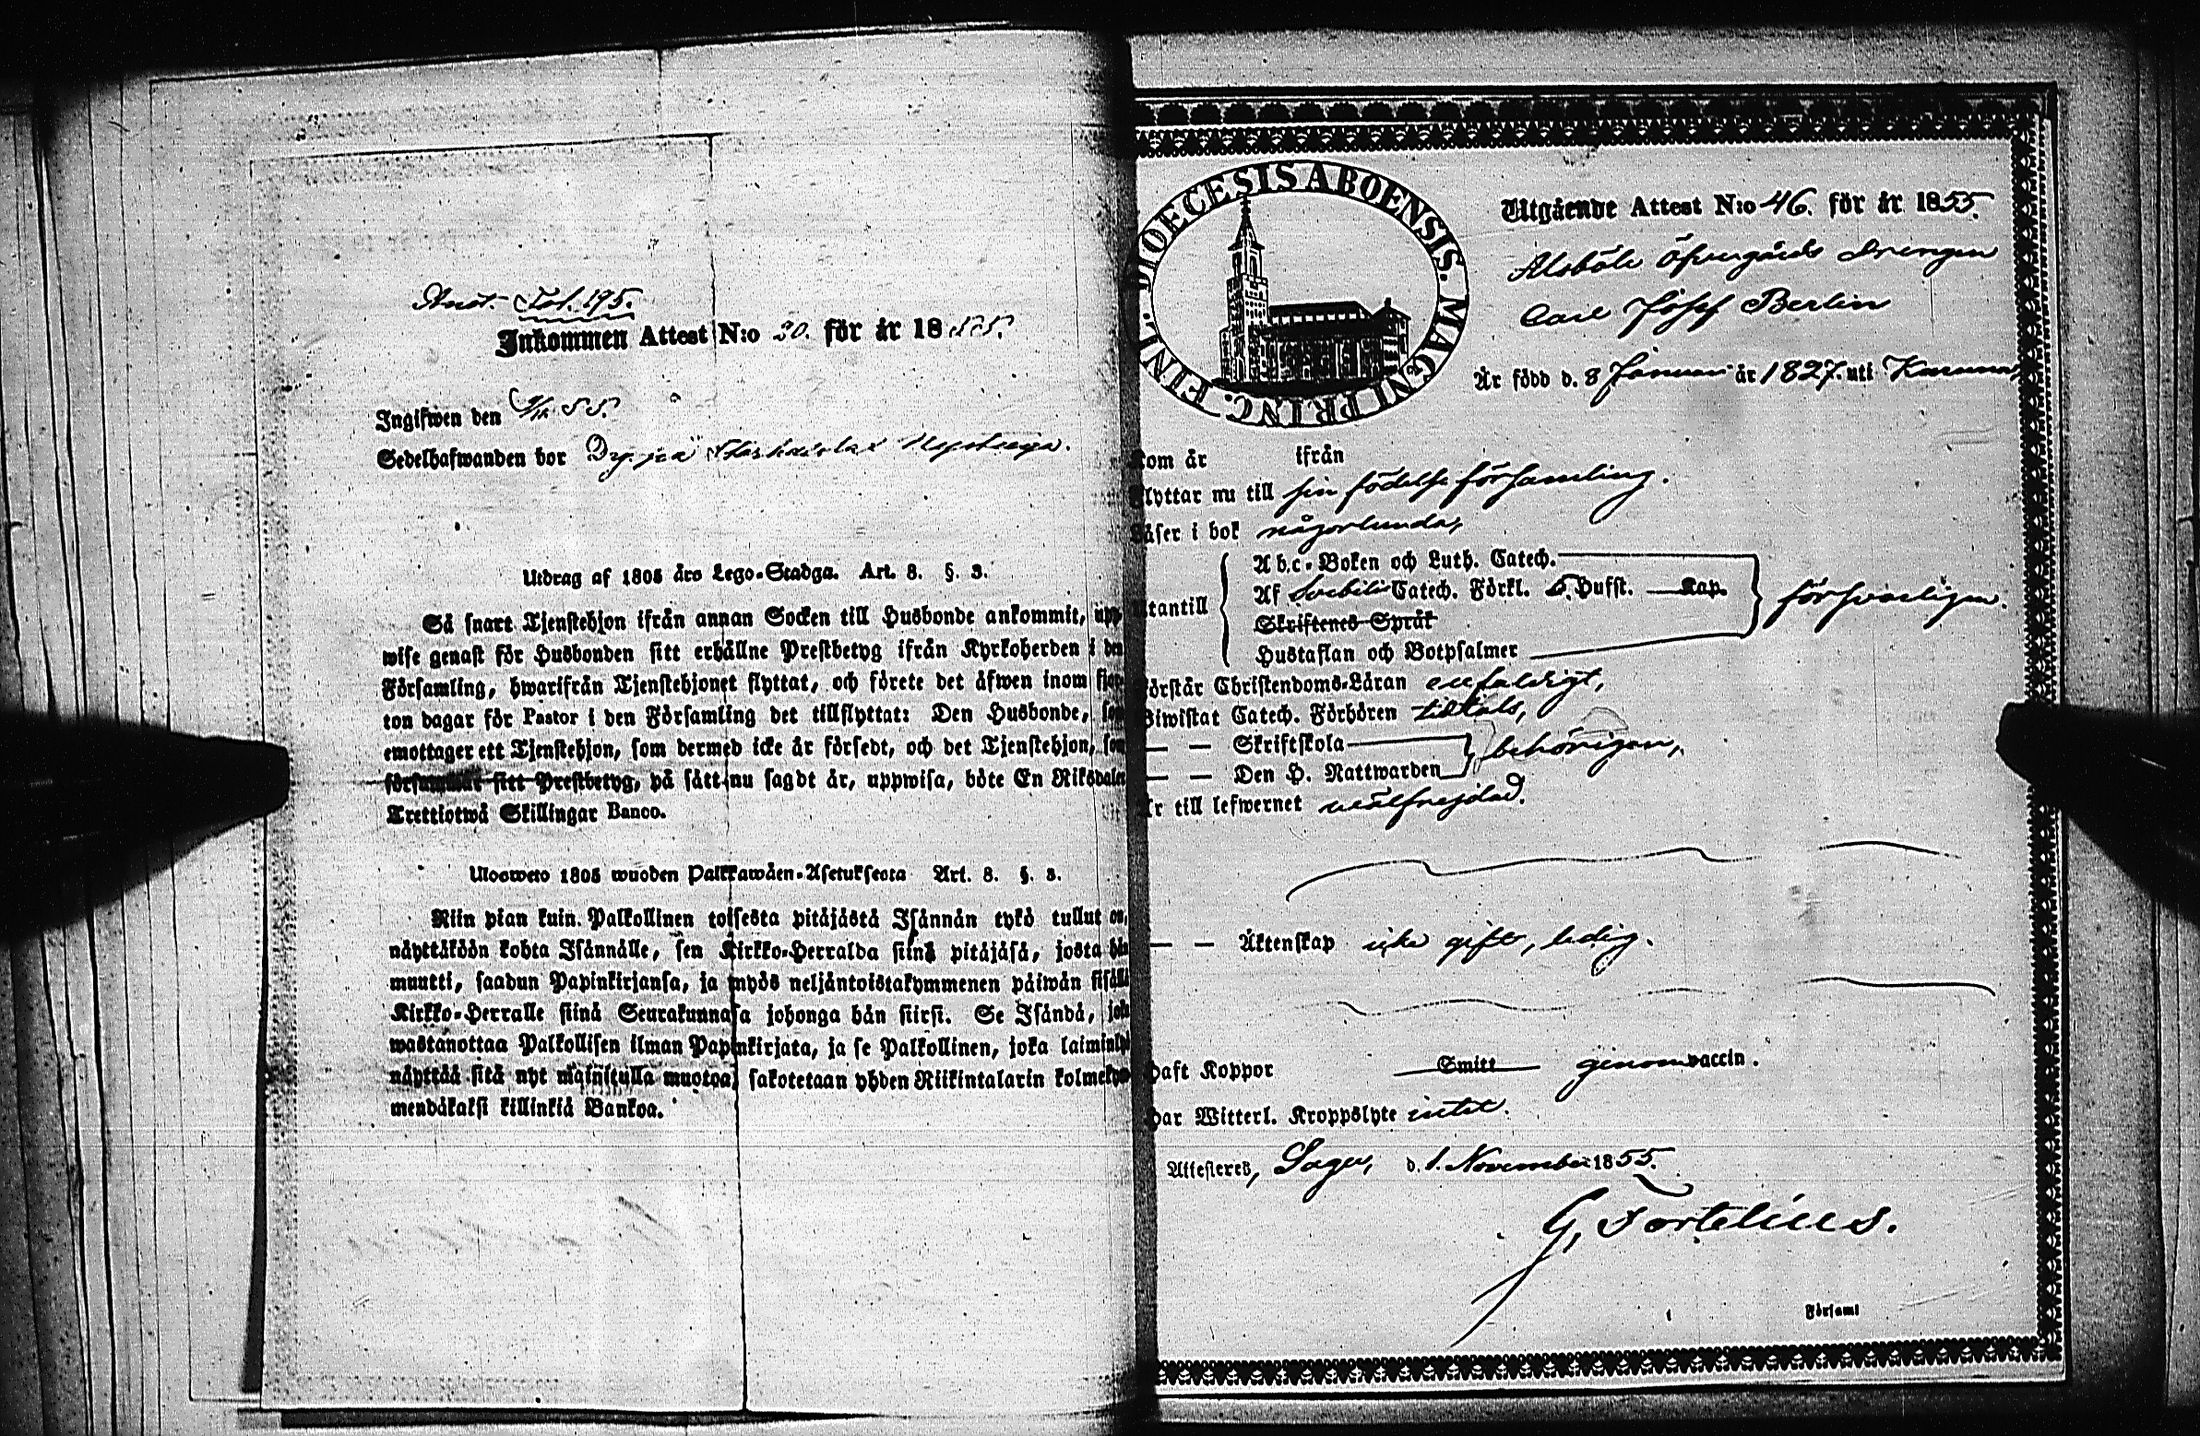 Anot. Fol. 195.
Inkommen Attest N:o 30. för år 1855.
Ingifwen den 9/12 55.
Sedelhafwanden bor
Utdrag af 1805 års Lego-Stadga. Art. 8. §. 3.
Så snart Tjenstehjon ifrån annan Socken till Husbonde ankommit, upp-
wise genast för Husbonden sitt erhållne Prestbetyg ifrån Kyrkoherden i den
Församling, hwarifrån Tjenstehjonet flyttat, och förete det äfwen inom fjor-
ton dagar för Pastor i den Församling det tillflyttat: Den Husbonde, som
emottager ett Tjenstehjon, som dermed icke är försedt, och det Tjenstehjon, som
försummar sitt Prestbetyg, på sätt nu sagdt är, uppwisa, böte En Riksdaler
Trettiotwå Skillingar Banco.
Ulosweto 1805 wuoden Palkkawäen-Asetuksesta Art. 8. §. 3.
Niin pian kuin Palkollinen toisesta pitäjästä Isännän tykö tullut on,
näyttäköön kohta Isännälle, sen Kirkko-Herralda siinä pitäjäsä, josta hän
muutti, saadun Papinkirjansa, ja myös neljäntoistakymmenen päiwän sisällä
Kirkko-Herralle siinä Seurakunnasa johonga hän siirsi. Se Isändä, joka
wastanottaa Palkollisen ilman Papinkirjata, ja se Palkollinen, joka laiminlyö
näyttää sitä nyt mainitulla muotoa, sakotetaan yhden Riikintalarin kolmekym-
mendäkaksi killinkiä Bankoa.
DIOECESIS ABOENSIS. MAGNI PRINC. FINL.
Utgående Attest N:o 46. för år 1855.
Alsböle Öfvergårds Drengen
Carl Josef Berlin
Är född d. 8 Januari år 1827. uti Karuna,
Kom år ifrån
Flyttar nu till sin födelse församling.
Läser i bok någorlunda,
Utantill
A b,c-Boken och Luth. Catech.
Af Svebilii Catech. Förkl. 5. Hufst. — Kap.
Skriftenes Språk
Hustaflan och Botpsalmer
försvarligen.
Förstår Christendoms-Läran enfaldigt,
Biwistat Catech. Förhören tidtals,
— — Skriftskola
— — Den H. Nattwarden
behörigen,
Är till lefwernet wälfrejdad.
— — Äktenskap icke gift, ledig.
Haft Koppor Smitt genom vaccin.
Har Witterl. Kroppslyte intet.
Attesteras, Sagu, d. 1. November 1855.
G, Tortelius.
Församl